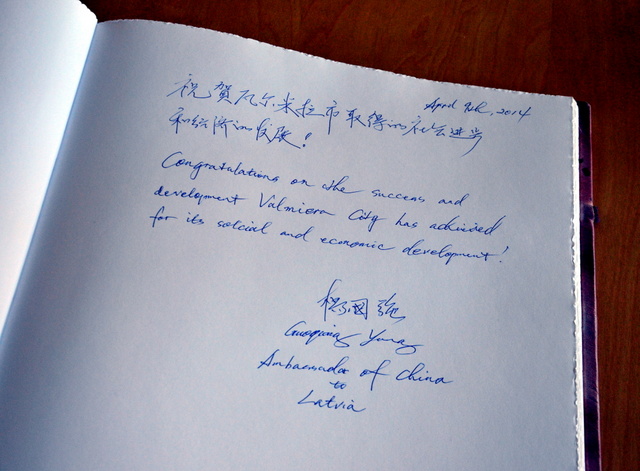 April 9th, 2014
祝賀瓦尔米拉市取得的社会进步
和经济的发展!
Congratulations on the success and
development Valmiera City has achieved
for its solcial and economic development!
杨国强
Guoqiang Yang
Ambassador of China
to
Latvia